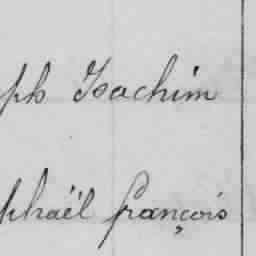 ph Joachim
phaël françois